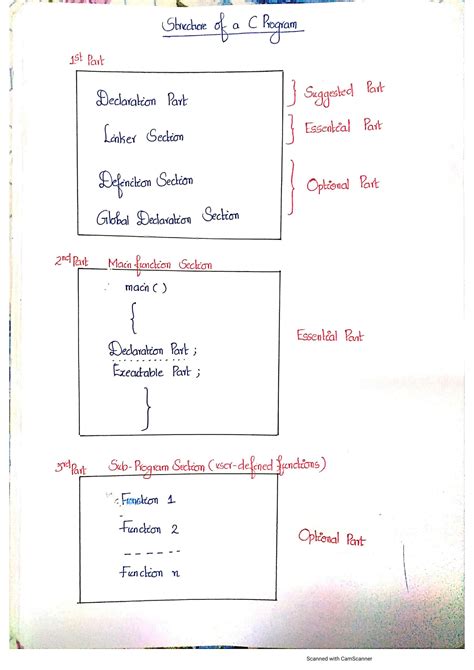 Structure of a C Program
1st Part
Declaration Part
Suggested Part
Linker Section
Essential Part
Definition Section
Optional Part
Global Declaration Section
2nd Part Main function Section
main ( )
{
Declaration Part ;
Essential Part
Executable Part ;
}
3rd Part Sub-Program Section (user-defined functions)
Function 1
Function 2
Optional Part
------
Function n
Scanned with CamScanner